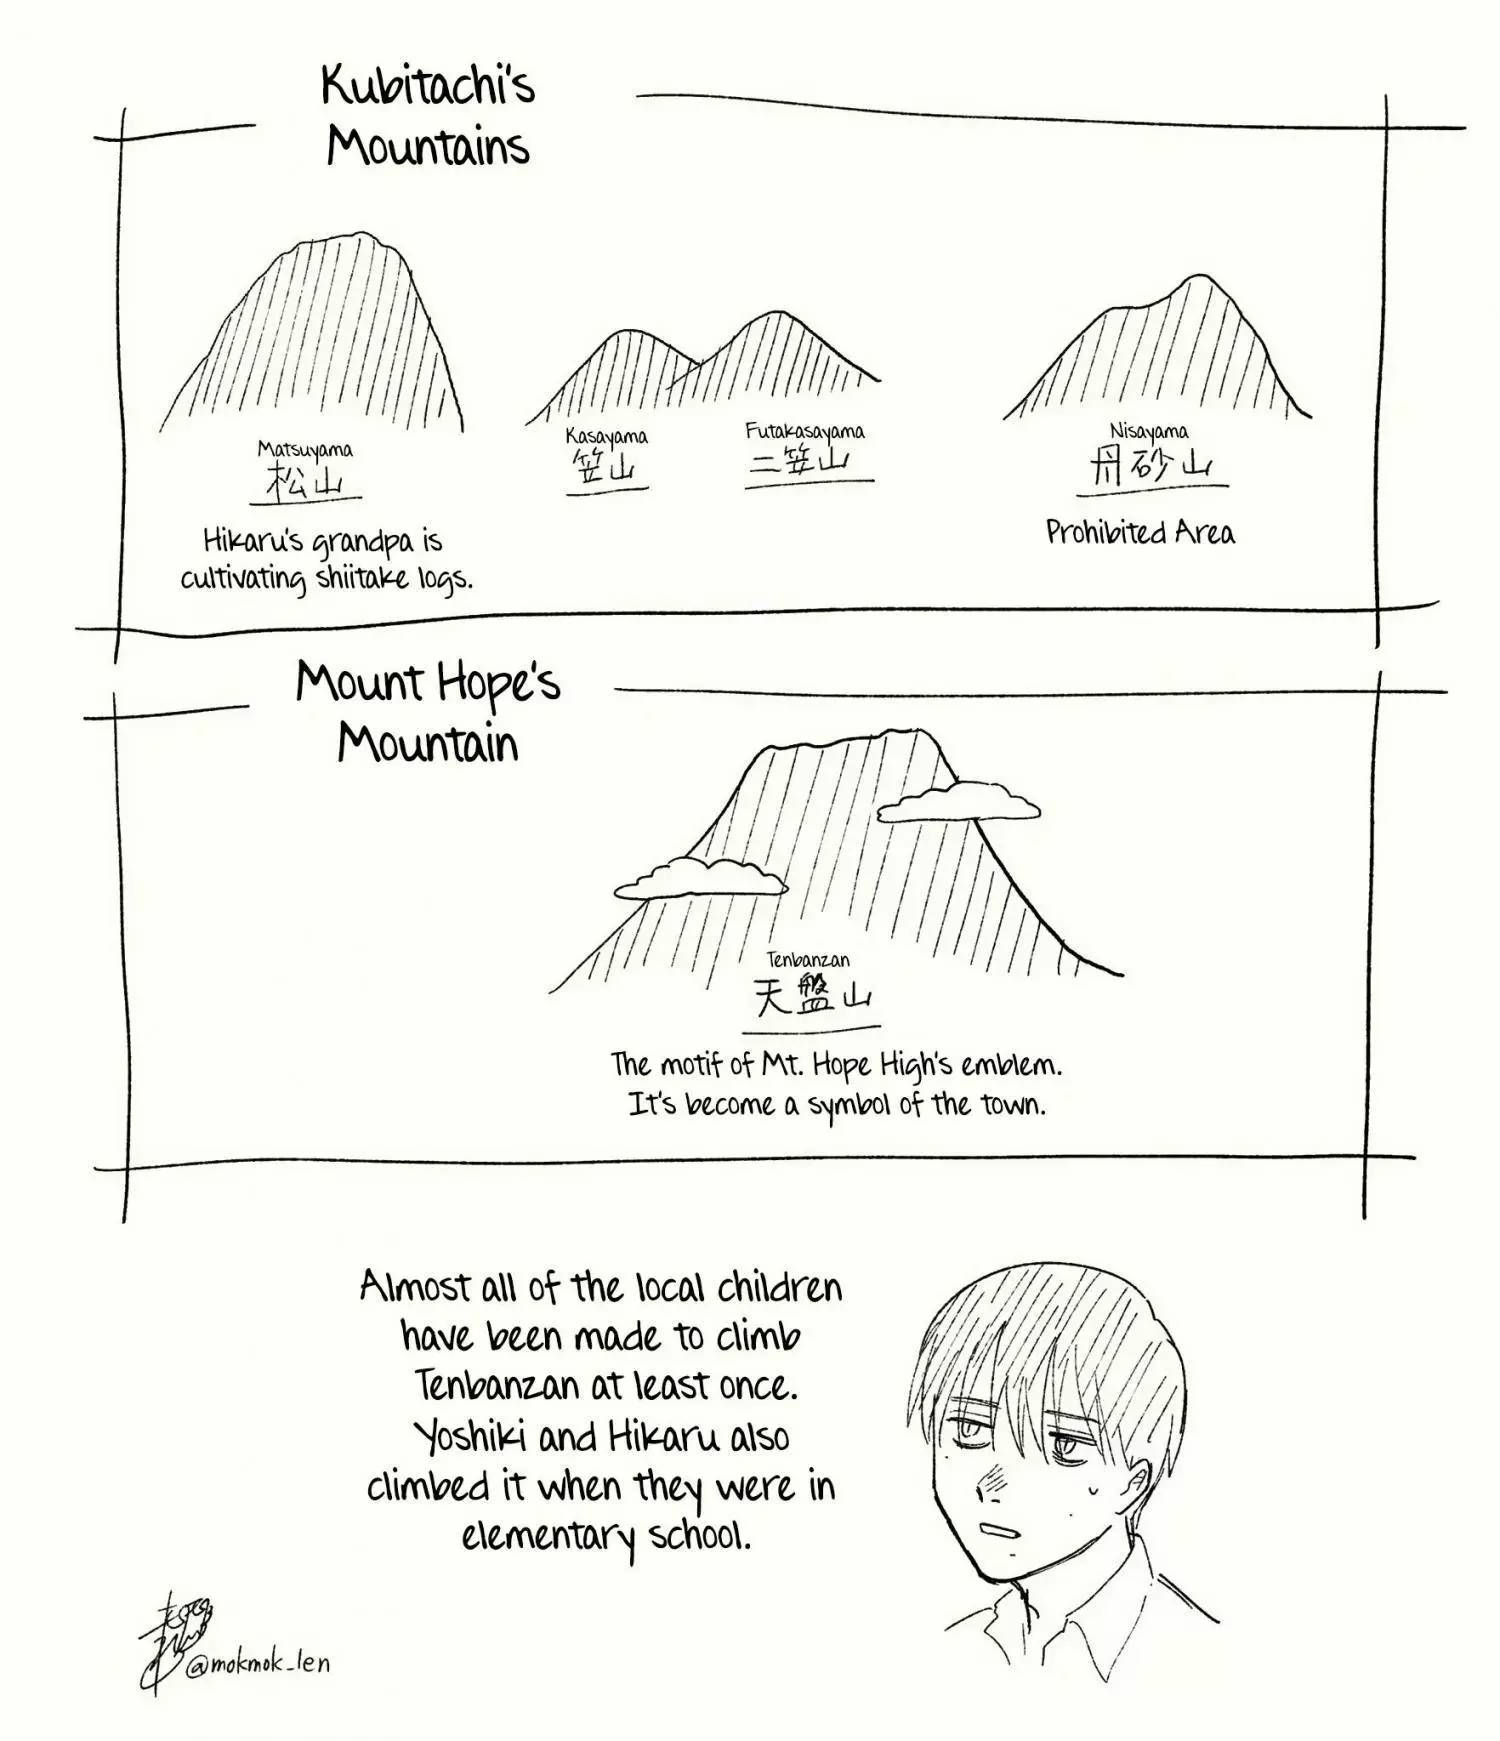 Kubitachi's
Mountains
Matsuyama
松山
Hikaru's grandpa is
cultivating shiitake logs.
Kasayama
笠山
Futakasayama
二笠山
Nisayama
丹砂山
Prohibited Area
Mount Hope's
Mountain
Tenbanzan
天盤山
The motif of Mt. Hope High's emblem.
It's become a symbol of the town.
Almost all of the local children
have been made to climb
Tenbanzan at least once.
Yoshiki and Hikaru also
climbed it when they were in
elementary school.
@mokmok_len